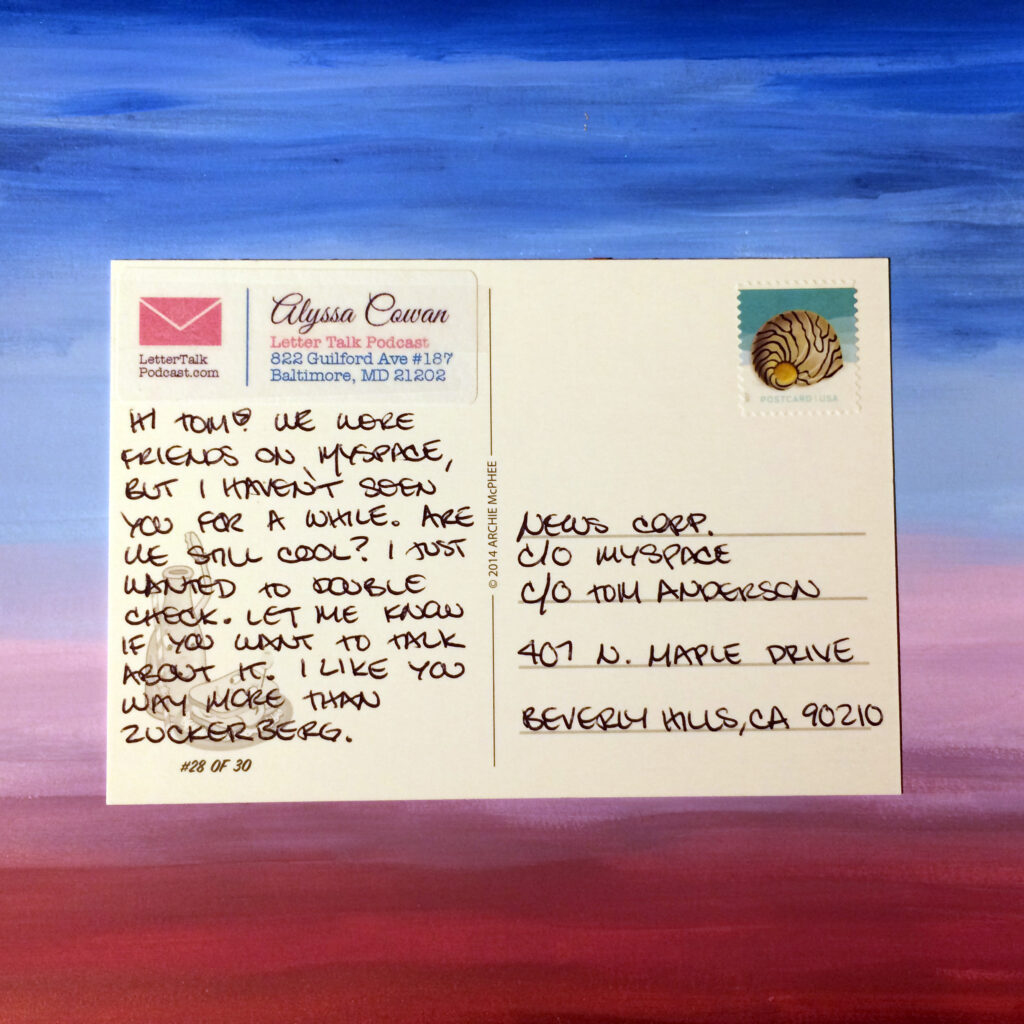 LetterTalk
Podcast.com
Alyssa Cowan
Letter Talk Podcast
822 Guilford Ave #187
Baltimore, MD 21202
POSTCARD | USA
HI TOM! WE WERE
FRIENDS ON MYSPACE,
BUT I HAVEN'T SEEN
YOU FOR A WHILE. ARE
WE STILL COOL? I JUST
WANTED TO DOUBLE
CHECK. LET ME KNOW
IF YOU WANT TO TALK
ABOUT IT. I LIKE YOU
WAY MORE THAN
ZUCKERBERG.
#28 OF 30
© 2014 ARCHIE McPHEE
NEWS CORP.
C/O MYSPACE
C/O TOM ANDERSON
407 N. MAPLE DRIVE
BEVERLY HILLS, CA 90210